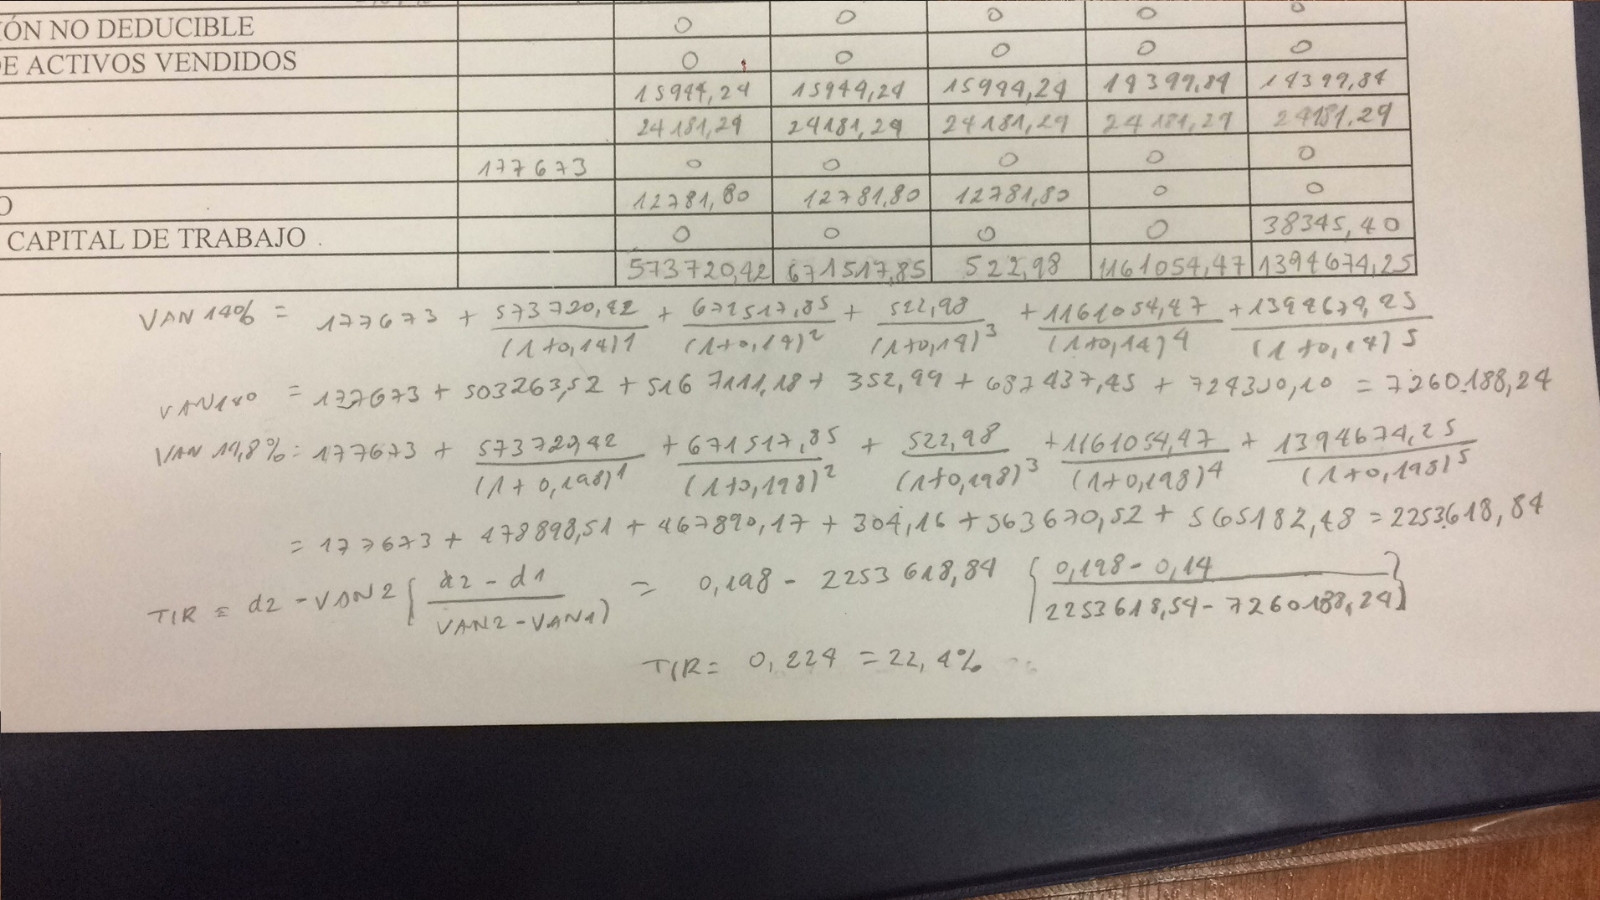 IÓN NO DEDUCIBLE 0 0 0 0 0
DE ACTIVOS VENDIDOS 0 0 0 0 0
15944,24 15944,24 15944,24 14399,84 14399,84
24181,29 24181,29 24181,29 24181,29 24181,29
177673 0 0 0 0 0
O 12781,80 12781,80 12781,80 0 0
CAPITAL DE TRABAJO 0 0 0 0 38345,40
573720,42 671517,85 522,98 1161054,47 1394674,25
VAN 14% = 177673 + 573720,42/(1+0,14)1 + 671517,85/(1+0,14)2 + 522,98/(1+0,14)3 + 1161054,47/(1+0,14)4 + 1394674,25/(1+0,14)5
= 177673 + 503263,52 + 516 7111,18 + 352,99 + 687437,45 + 724350,10 = 7260188,24
VAN 19,8% = 177673 + 573720,42/(1+0,198)1 + 671517,85/(1+0,198)2 + 522,98/(1+0,198)3 + 1161054,47/(1+0,198)4 + 1394674,25/(1+0,198)5
= 177673 + 478898,51 + 467890,17 + 304,16 + 563670,52 + 565182,48 = 2253618,84
TIR = d2 - VAN2 { d2 - d1 / VAN2 - VAN1 } = 0,198 - 2253618,84 { 0,198 - 0,14 / 2253618,54 - 7260188,24 }
TIR = 0,224 = 22,4%